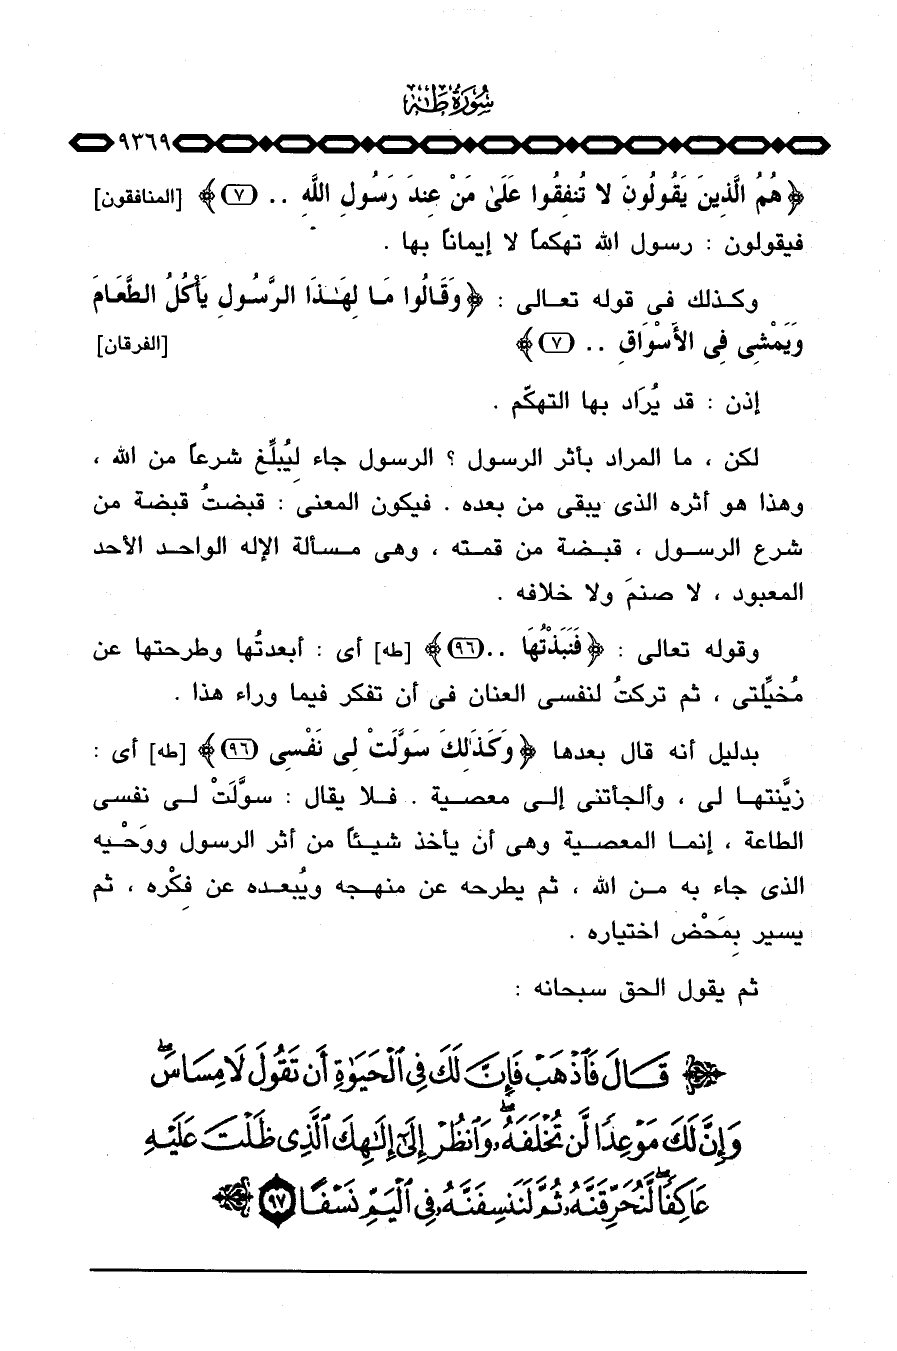 سُورَةُ طٰهٰ
٩٣٦٩
﴿هُمُ الَّذِينَ يَقُولُونَ لا تُنفِقُوا عَلَىٰ مَنْ عِندَ رَسُولِ اللَّهِ .. (٧)﴾ [المنافقون]
فيقولون : رسول الله تهكماً لا إيماناً بها .
وكذلك فى قوله تعالى : ﴿وَقَالُوا مَا لِهَٰذَا الرَّسُولِ يَأْكُلُ الطَّعَامَ
وَيَمْشِى فِى الأَسْوَاقِ .. (٧)﴾ [الفرقان]
إذن : قد يُرَاد بها التهكّم .
لكن ، ما المراد بأثر الرسول ؟ الرسول جاء ليُبلِّغ شرعاً من الله ،
وهذا هو أثره الذى يبقى من بعده . فيكون المعنى : قبضتُ قبضة من
شرع الرسول ، قبضة من قمته ، وهى مسألة الإله الواحد الأحد
المعبود ، لا صنمَ ولا خلافه .
وقوله تعالى : ﴿فَنَبَذْتُهَا ..(٩٦)﴾ [طه] أى : أبعدتُها وطرحتها عن
مُخيِّلتى ، ثم تركتُ لنفسى العنان فى أن تفكر فيما وراء هذا .
بدليل أنه قال بعدها ﴿وَكَذَٰلِكَ سَوَّلَتْ لِى نَفْسِى (٩٦)﴾ [طه] أى :
زيَّنتها لى ، وألجأتنى إلى معصية . فلا يقال : سوَّلَتْ لى نفسى
الطاعة ، إنما المعصية وهى أن يأخذ شيئاً من أثر الرسول ووَحْيه
الذى جاء به من الله ، ثم يطرحه عن منهجه ويُبعده عن فِكْره ، ثم
يسير بِمَحْض اختياره .
ثم يقول الحق سبحانه :
﴿ قَالَ فَٱذْهَبْ فَإِنَّ لَكَ فِى ٱلْحَيَوٰةِ أَن تَقُولَ لَا مِسَاسَ ۖ
وَإِنَّ لَكَ مَوْعِدًا لَّن تُخْلَفَهُۥ ۖ وَٱنظُرْ إِلَىٰٓ إِلَٰهِكَ ٱلَّذِى ظَلْتَ عَلَيْهِ
عَاكِفًا ۖ لَّنُحَرِّقَنَّهُۥ ثُمَّ لَنَنسِفَنَّهُۥ فِى ٱلْيَمِّ نَسْفًا (٩٧) ﴾